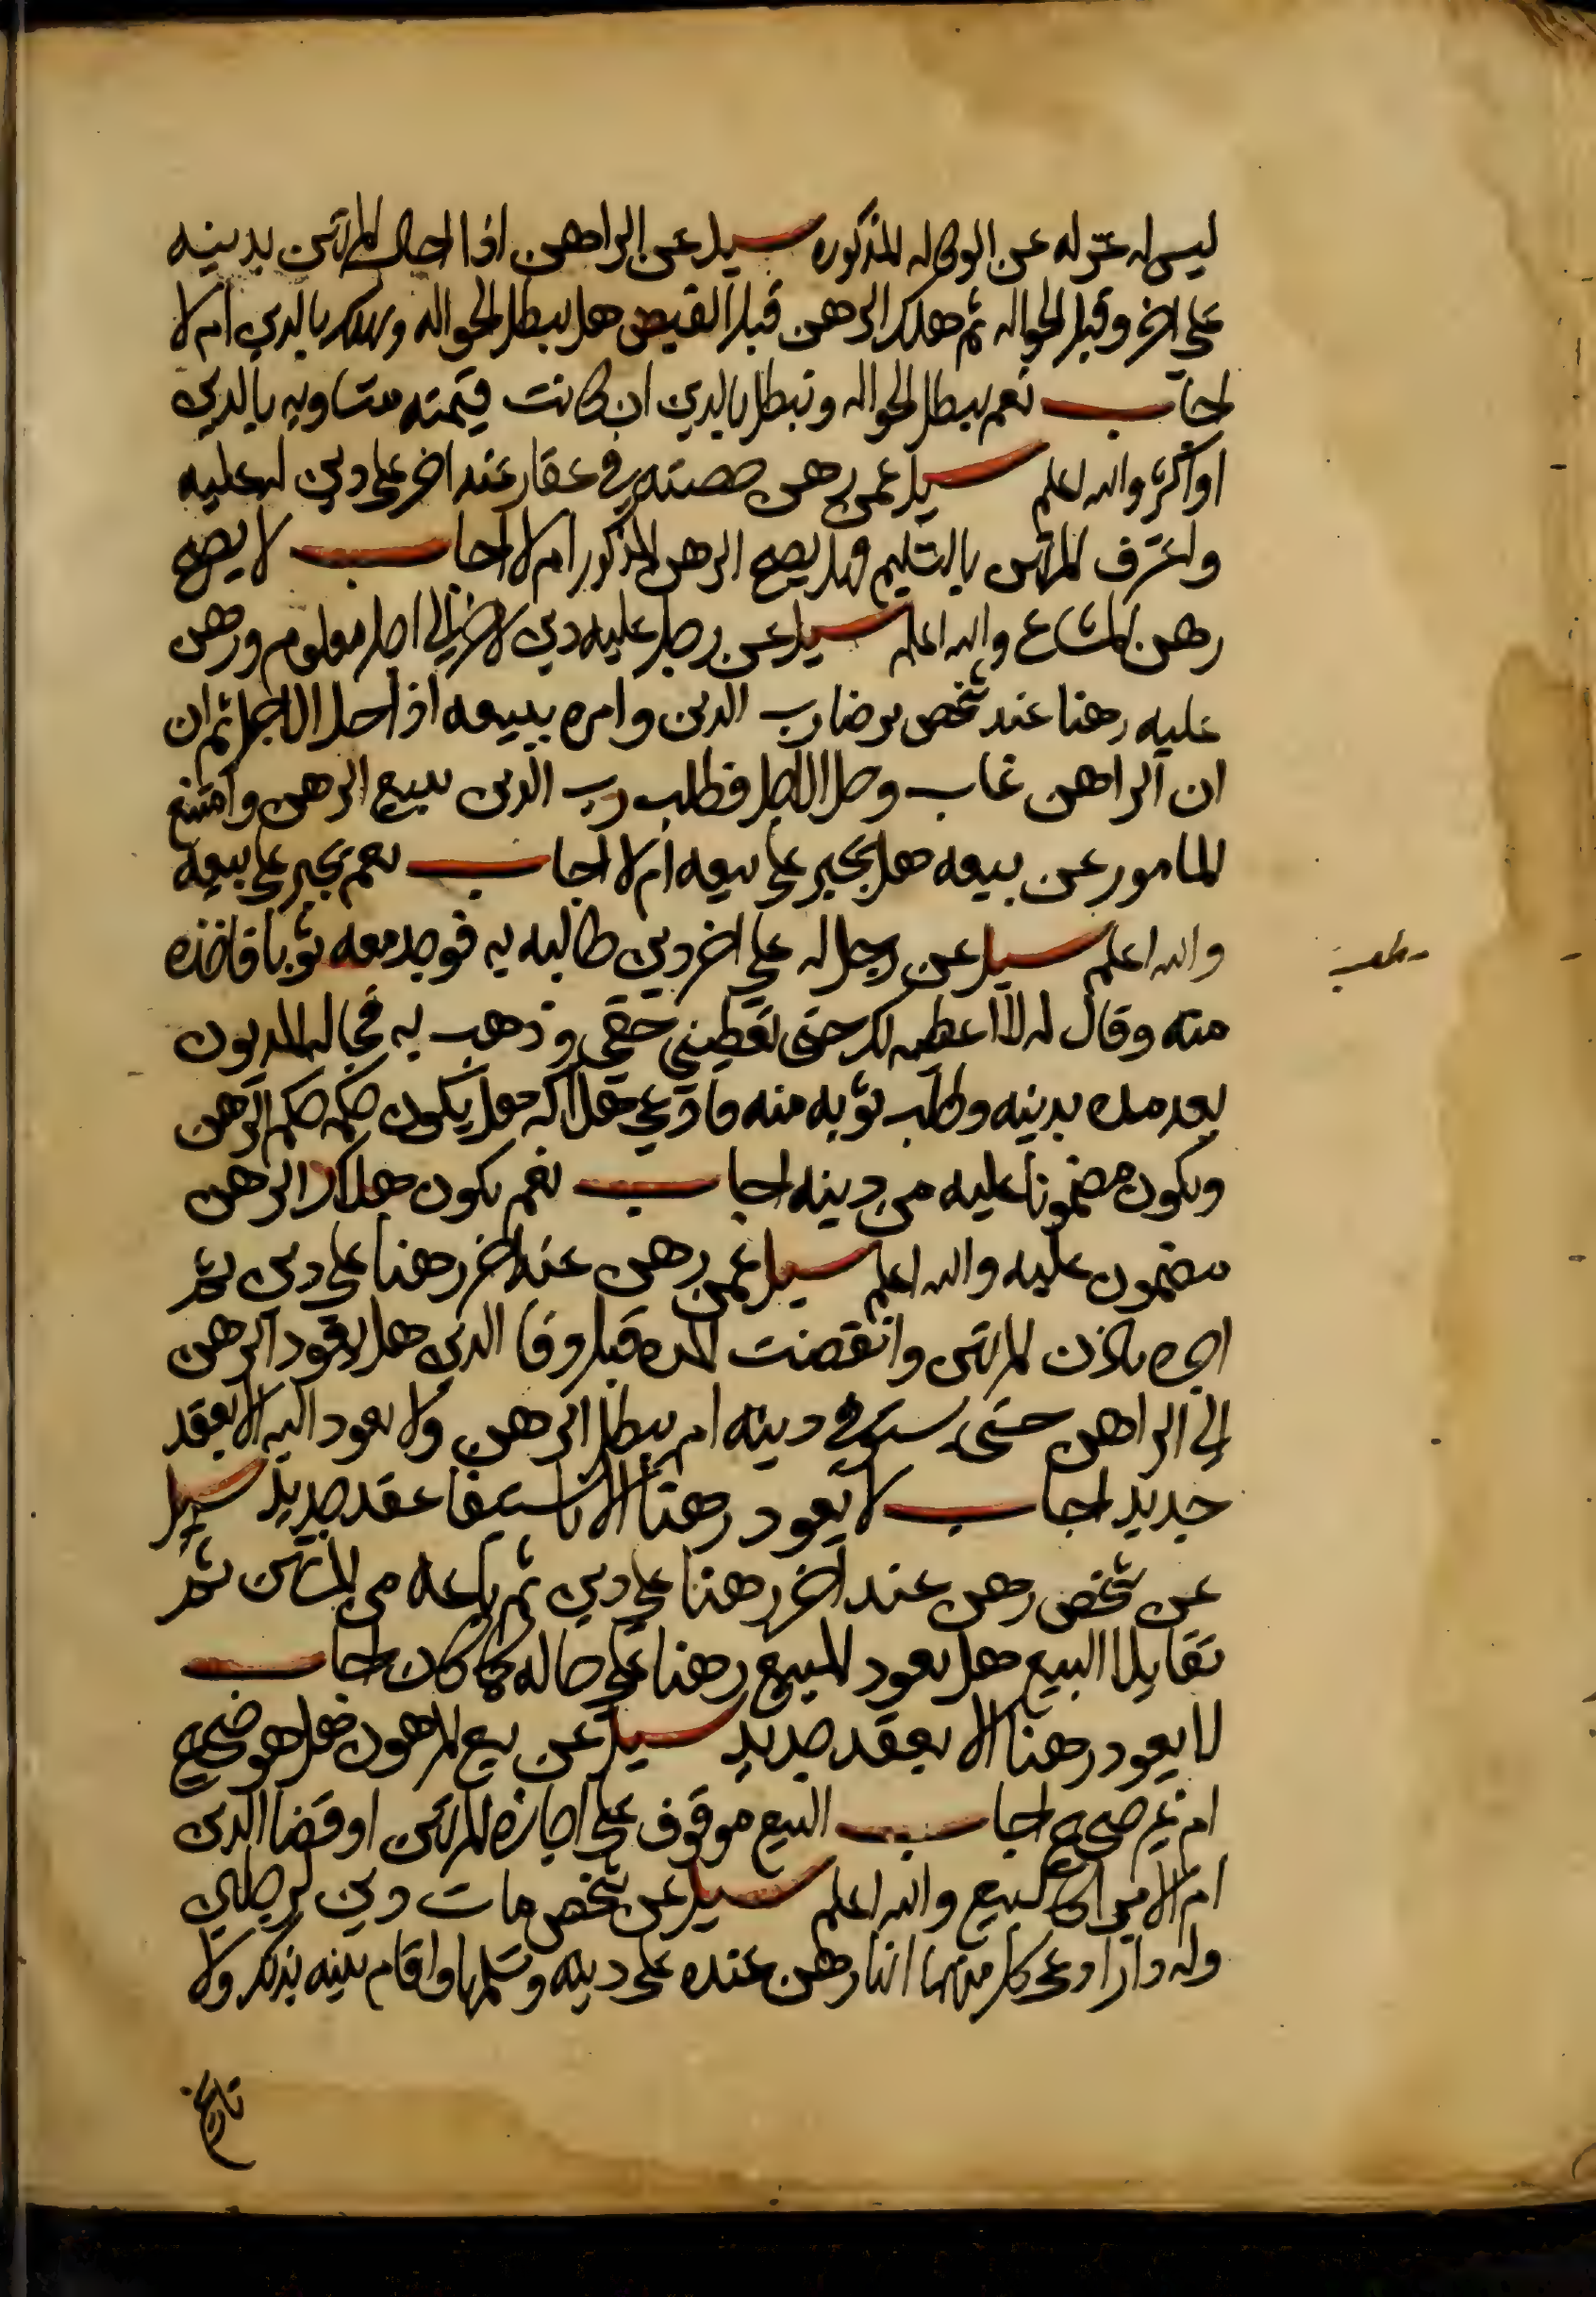 ليس له عزله عن الوكاله المذكوره سيل عن الراهن اذا احال المرتهن بدينه
على اخر وقبل الحواله ثم هلك الرهن قبل القبض هل يبطل الحواله ويهلك بالدين ام لا
اجاب نعم يبطل الحواله وتبطل بالدين ان كانت قيمته متساويه بالدين
او اكثر والله اعلم سيل عمن رهن حصته في عقار عند اخر على دين له عليه
واعترف المرتهن بالتسليم فهل يصح الرهن المذكور ام لا اجاب لا يصح
رهن المشاع والله اعلم سيل عن رجل عليه دين لاخر الى اجل معلوم ورهن
عليه رهنا عند شخص برضا رب الدين وامره ببيعه اذا حل الاجل ثم ان
ان الراهن غاب وحل الاجل فطلب رب الدين بيع الرهن وامتنع
المامور عن بيعه هل يجبر على بيعه ام لا اجاب نعم يجبر على بيعه
والله اعلم سيل عن رجل له على اخر دين طالبه به فوجد معه ثوبا فاخذه
مطلب
منه وقال له لا اعطيه لك حتى تعطيني حقي وذهب به فجا له المديون
بعد مده بدينه وطلب ثوبه منه فادعى هلاكه هل يكون حكمه حكم الرهن
ويكون مضمونا عليه من دينه اجاب نعم يكون هلاك الرهن
مضمون عليه والله اعلم سيل عمن رهن عند اخر رهنا على دين ثم
اجره باذن المرتهن وانقضت المده قبل وفا الدين هل يعود الرهن
الى الراهن حتى يستوفي دينه ام يبطل الرهن ولا يعود اليه الا بعقد
جديد اجاب لا يعود رهنا الا باستيفا عقد جديد سيل
عن شخص رهن عند اخر رهنا على دين ثم باعه من المرتهن ثم
تقايلا البيع هل يعود المبيع رهنا على حاله كما كان اجاب
لا يعود رهنا الا بعقد جديد سيل عن بيع المرهون هل هو صحيح
ام غير صحيح اجاب البيع موقوف على اجازه المرتهن او قضا الدين
ام الامر البيع والله اعلم سيل عن شخص مات دين لرجلين
وله دار ادعى كل منهما انها رهن عنده على دينه وتسلمها واقام بينه بذلك ولا
تاريخ